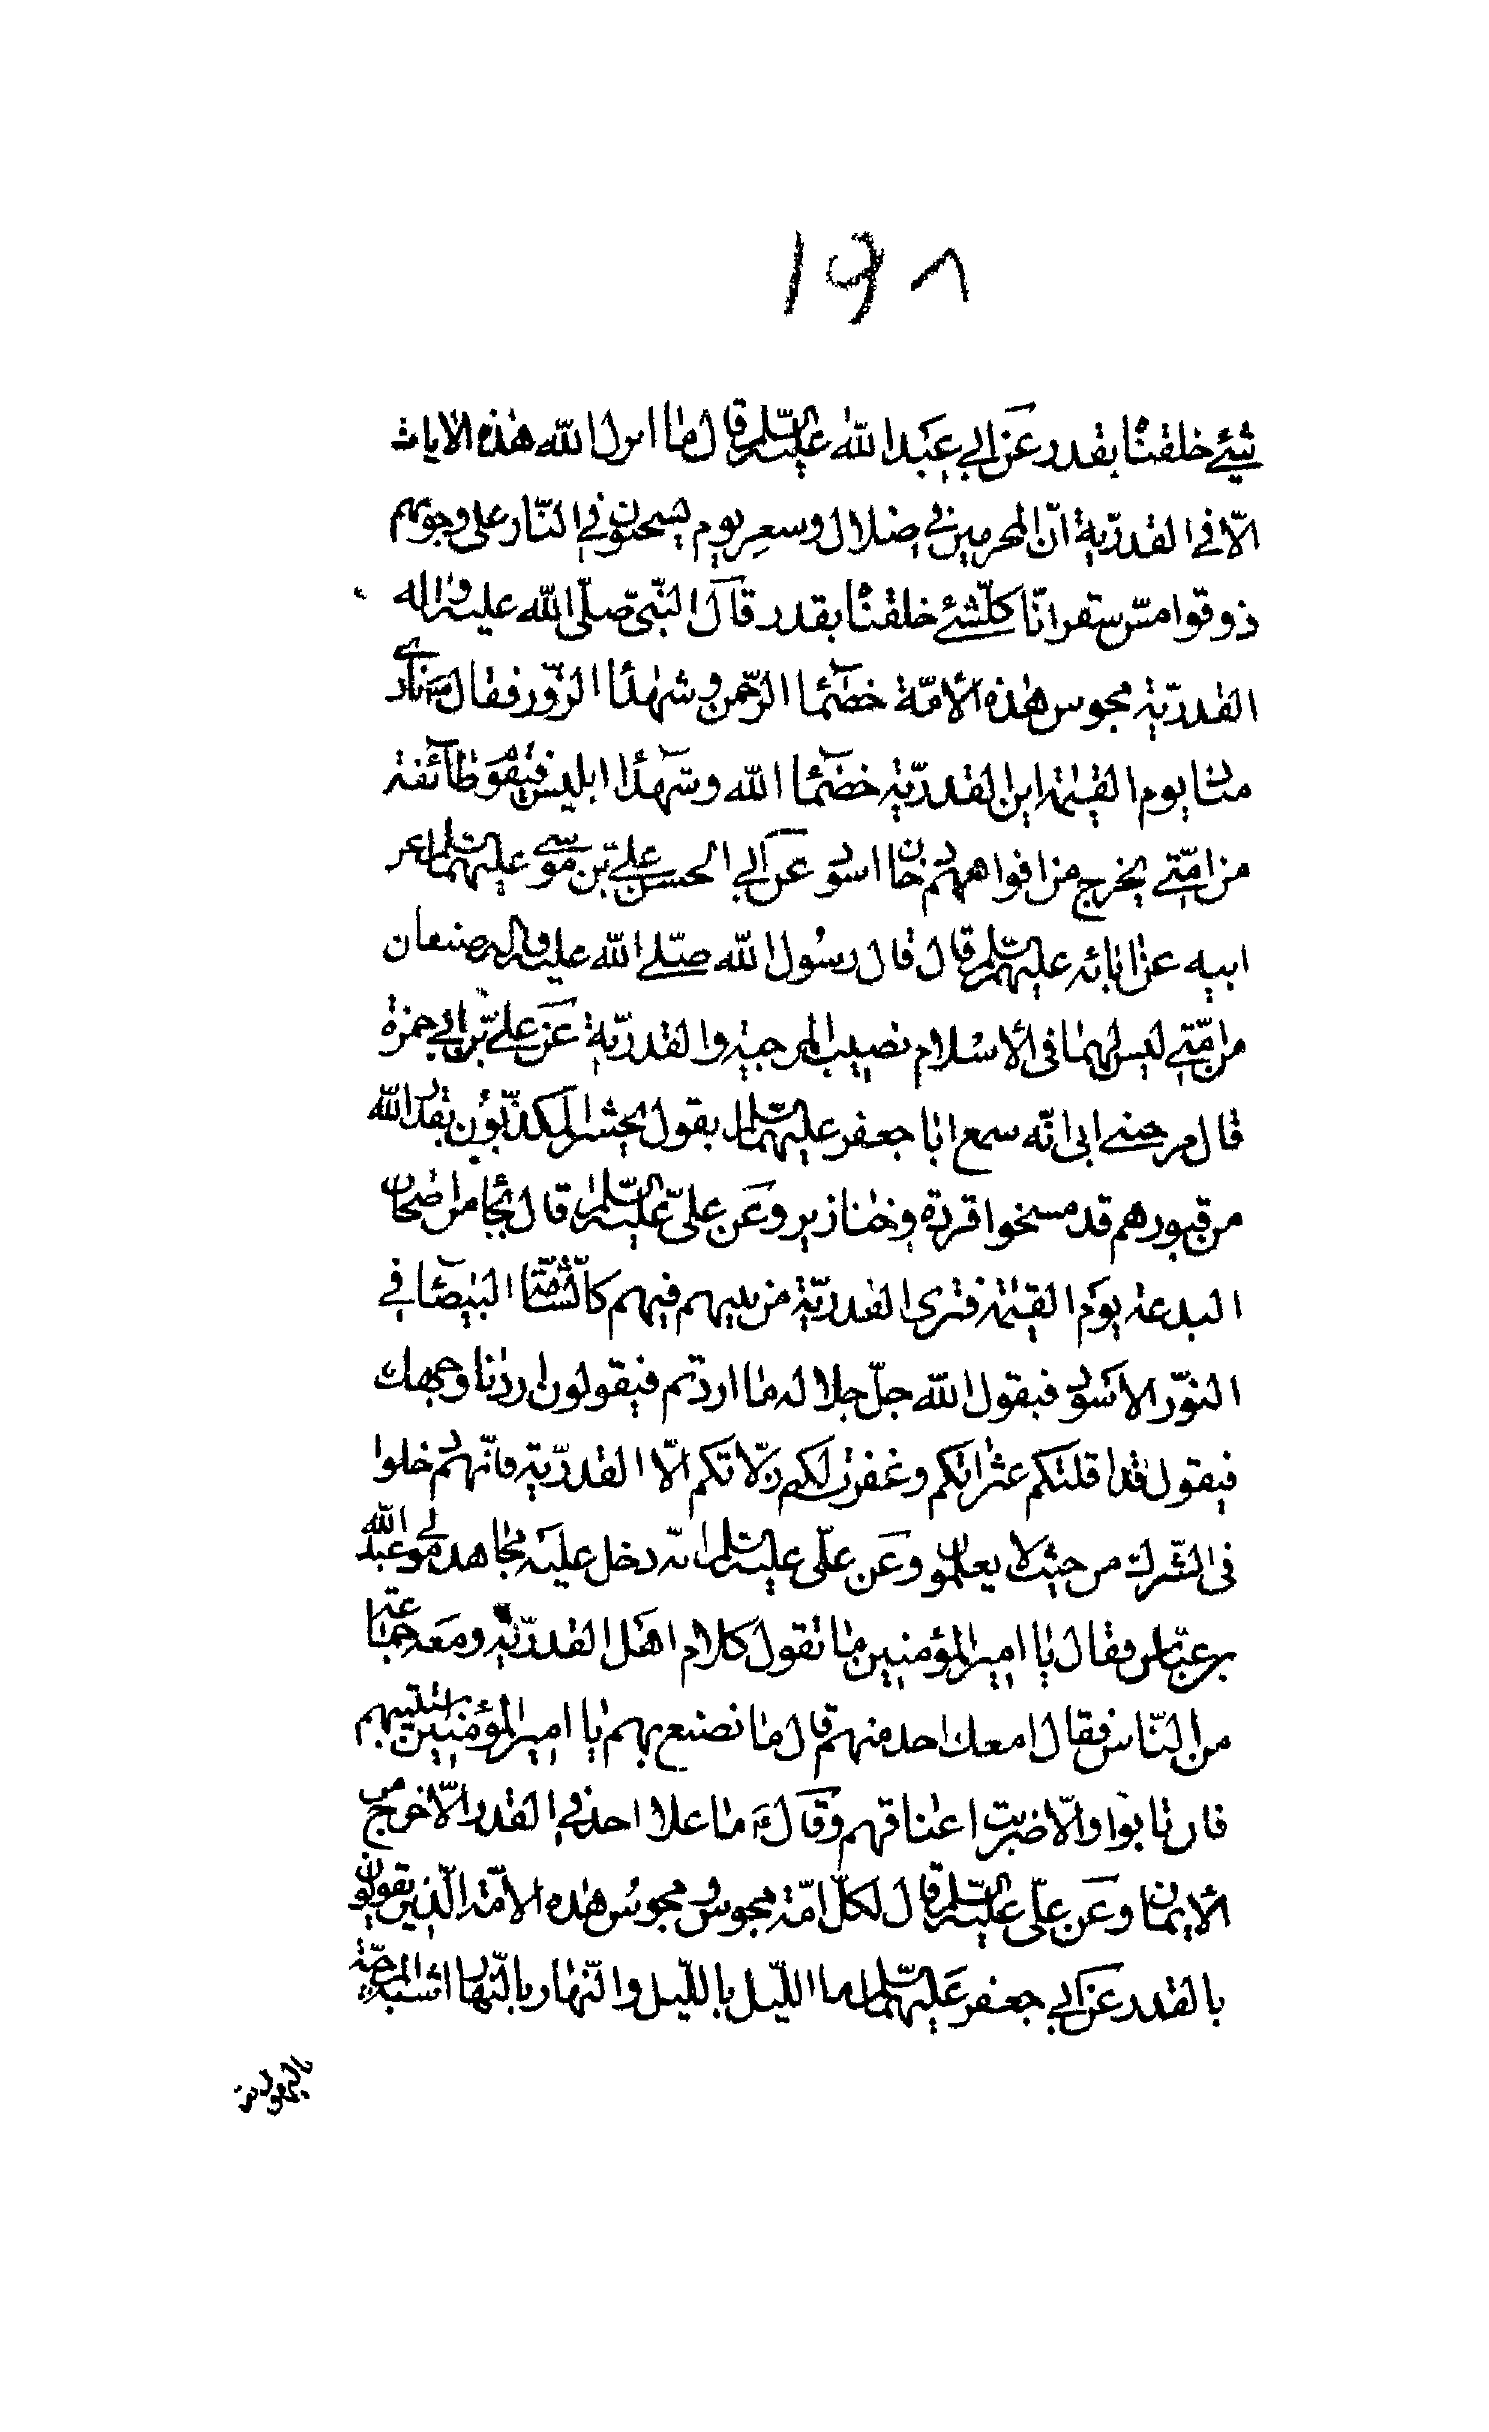 ١٩٨
شئ خلقناه بقدر عن ابي عبد الله عليه السلم قال ما انزل الله هذه الايات
الا في القدرية ان المجرمين في ضلال وسعر يوم يسحبون في النار على وجوههم
ذوقوا مس سقر انا كل شئ خلقناه بقدر قال النبي صلى الله عليه واله
القدرية مجوس هذه الامة خصماء الرحمن وشهداء الزور فقال ص ينادى
مناد يوم القيمة اين القدرية خصماء الله وشهداء ابليس فيقوم طائفة
من امتي يخرج من افواههم دخان اسود عن ابي الحسن علي بن موسى عليهما السلم عن
ابيه عن ابائه عليهم السلم قال قال رسول الله صلى الله عليه واله صنفان
من امتي ليس لهما في الاسلام نصيب المرجئة والقدرية عن علي بن ابي حمزة
قال حدثني ابي انه سمع ابا جعفر عليهما السلم يقول يحشر المكذبون بقدر الله
من قبورهم قد مسخوا قردة وخنازير وعن علي عليه السلم قال يجاء من اصحاب
البدعة يوم القيمة فترى القدرية من بينهم فيهم كالشامة البيضاء في
الثور الاسود فيقول الله جل جلاله ما اردتم فيقولون اردنا وجهك
فيقول قد اقلتكم عثراتكم وغفرت لكم زلاتكم الا القدرية فانهم دخلوا
في الشرك من حيث لا يعلمون وعن علي عليه السلم انه دخل عليه مجاهد مولى عبد الله
بن عباس فقال يا امير المؤمنين ما تقول كلام اهل القدرية ومعه جماعة
من الناس فقال امعك احد منهم قال ما تصنع بهم يا امير المؤمنين استتيبهم
فان تابوا والا ضربت اعناقهم وقال ع ما غلا احد في القدر الا خرج من
الايمان وعن علي عليه السلم قال لكل امة مجوس ومجوس هذه الامة الذين يقولون
بالقدر عن ابي جعفر عليهما السلم ما الليل بالليل والنهار بالنهار اشبه المرجئة